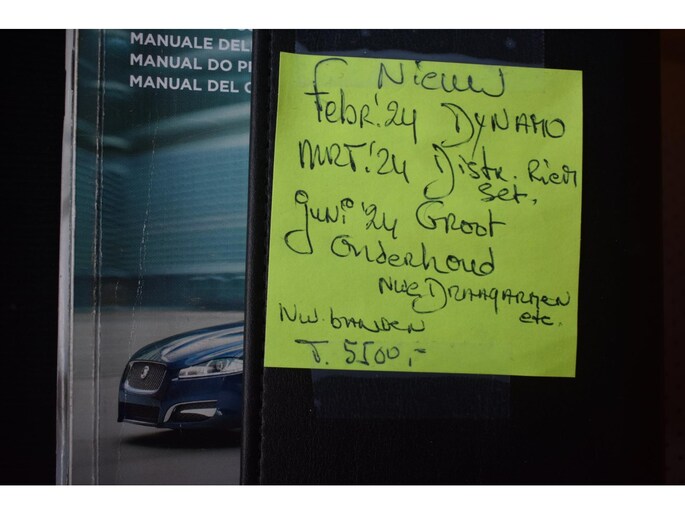 MANUALE DEL
MANUAL DO P
MANUAL DEL
Nieuw
Febr.'24 Dynamo
MRT.'24 Distr. Riem
Set.
Juni '24 Groot
Onderhoud
NWE DRAAGARMEN
etc.
NW. BANDEN
T. 5500,-